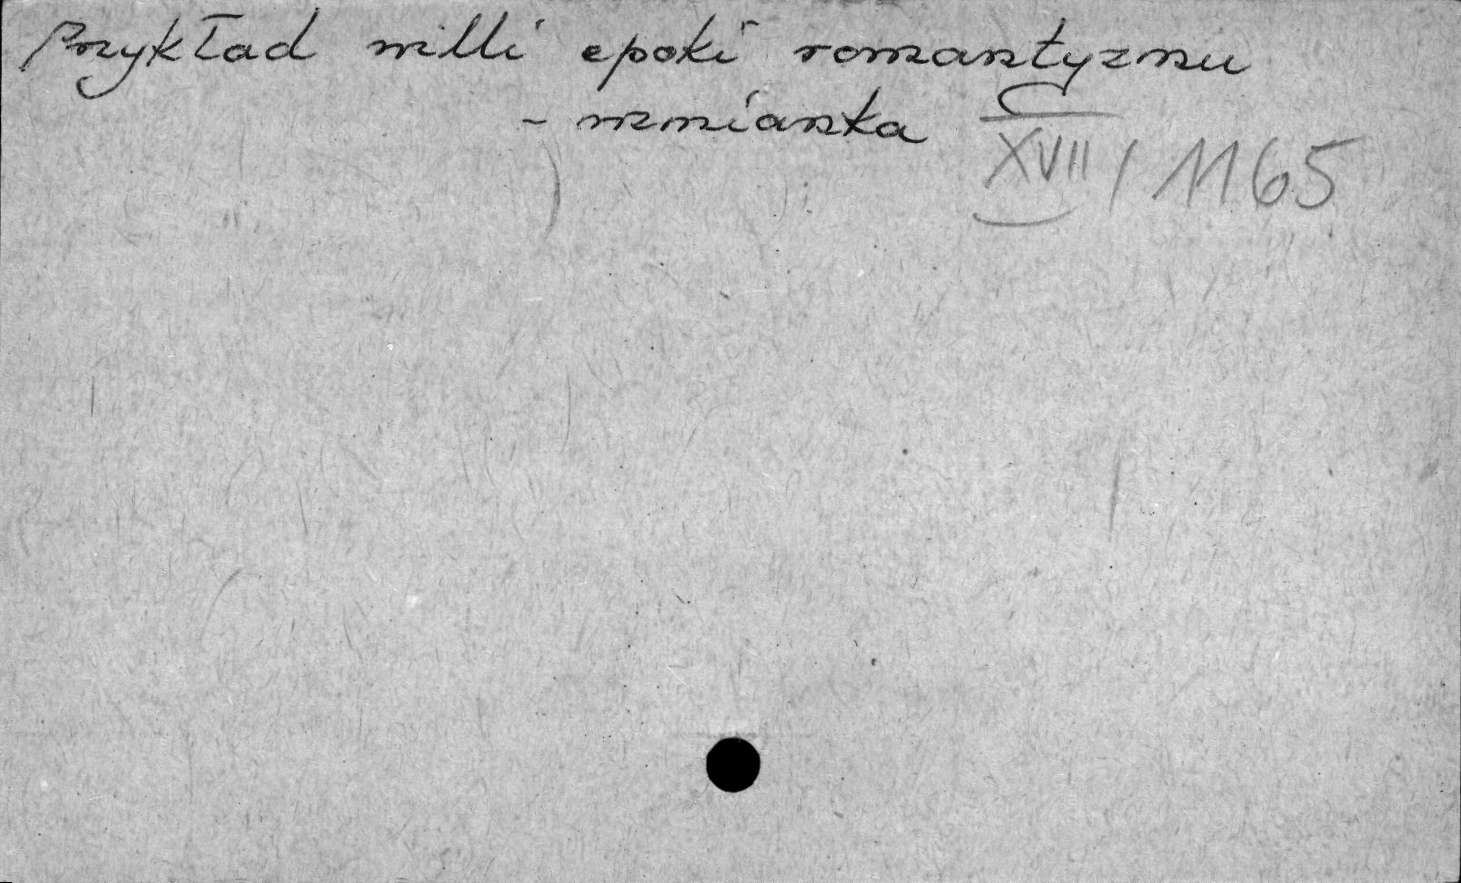 Przykład willi epoki romantyzmu
- wzmianka
XVII / 1165